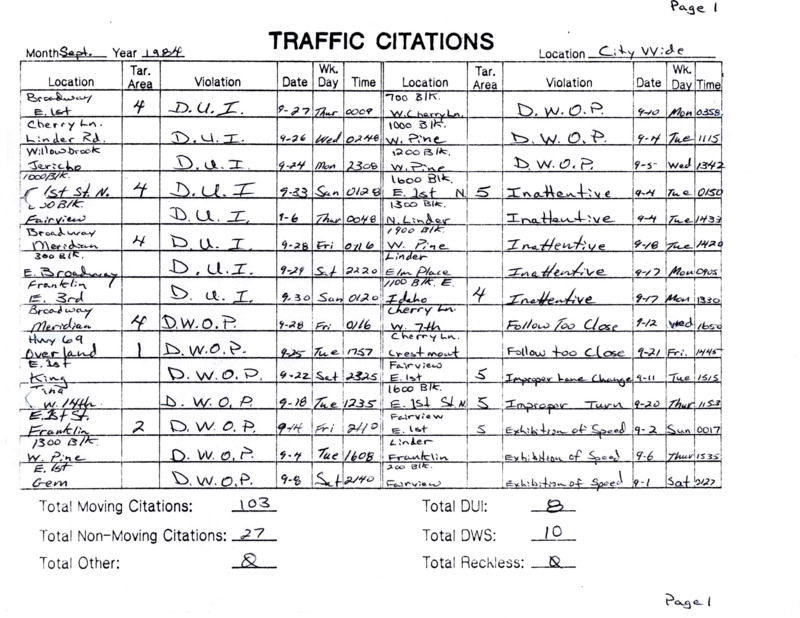 Page 1
TRAFFIC CITATIONS
Month Sept. Year 1984 Location City Wide
Location Tar. Area Violation Date Wk. Day Time Location Tar. Area Violation Date Wk. Day Time
Broadway 700 Blk.
E. 1st 4 D.U.I. 9-27 Thur 0009 W. Cherry Ln. D.W.O.P. 9-10 Mon 0358
Cherry Ln. 1000 Blk.
Linder Rd. D.U.I. 9-26 Wed 0248 W. Pine D.W.O.P. 9-4 Tue 1115
Willowbrook 1200 Blk.
Jericho D.U.I. 9-24 Mon 2308 W. Pine D.W.O.P. 9-5- Wed 1342
1000 Blk. 1600 Blk.
1st St. N. 4 D.U.I 9-33 Sun 0128 E. 1st N 5 Inattentive 9-4 Tue 0150
00 Blk. 1300 Blk.
Fairview D.U.I. 9-6 Thur 0048 N. Linder Inattentive 9-4 Tue 1433
Broadway 1900 Blk.
Meridian 4 D.U.I. 9-28 Fri 0116 W. Pine Inattentive 9-18 Tue 1420
300 Blk. Linder
E. Broadway D.U.I. 9-29 Sat 2220 Elm Place Inattentive 9-17 Mon 0905
Franklin 1100 Blk. E.
E. 3rd D.U.I. 9.30 Sun 0120 Idaho 4 Inattentive 9-17 Mon 1330
Broadway Cherry Ln.
Meridian 4 D.W.O.P. 9-28 Fri 0116 W. 7th Follow Too Close 9-12 Wed 1650
Hwy 69 Cherry Ln.
Overland 1 D.W.O.P. 9-25 Tue 1757 Crestmont Follow too Close 9-21 Fri. 1445
E. 1st Fairview
King D.W.O.P. 9-22 Sat 2325 E. 1st 5 Improper Lane Change 9-11 Tue 1515
Tina 1600 Blk.
W. 14th D.W.O.P. 9-18 Tue 1235 E. 1st St. N. 5 Improper Turn 9-20 Thur 1153
E. 1st St. Fairview
Franklin 2 D.W.O.P. 9-14 Fri 2110 E. 1st 5 Exhibition of Speed 9-2 Sun 0017
1300 Blk. Linder
W. Pine D.W.O.P. 9-4 Tue 1608 Franklin Exhibition of Speed 9-6 Thur 1535
E. 1st 200 Blk.
Gem D.W.O.P. 9-8 Sat 2140 Fairview Exhibition of Speed 9-1 Sat 2127
Total Moving Citations: 103 Total DUI: 8
Total Non-Moving Citations: 27 Total DWS: 10
Total Other: 0 Total Reckless: 0
Page 1